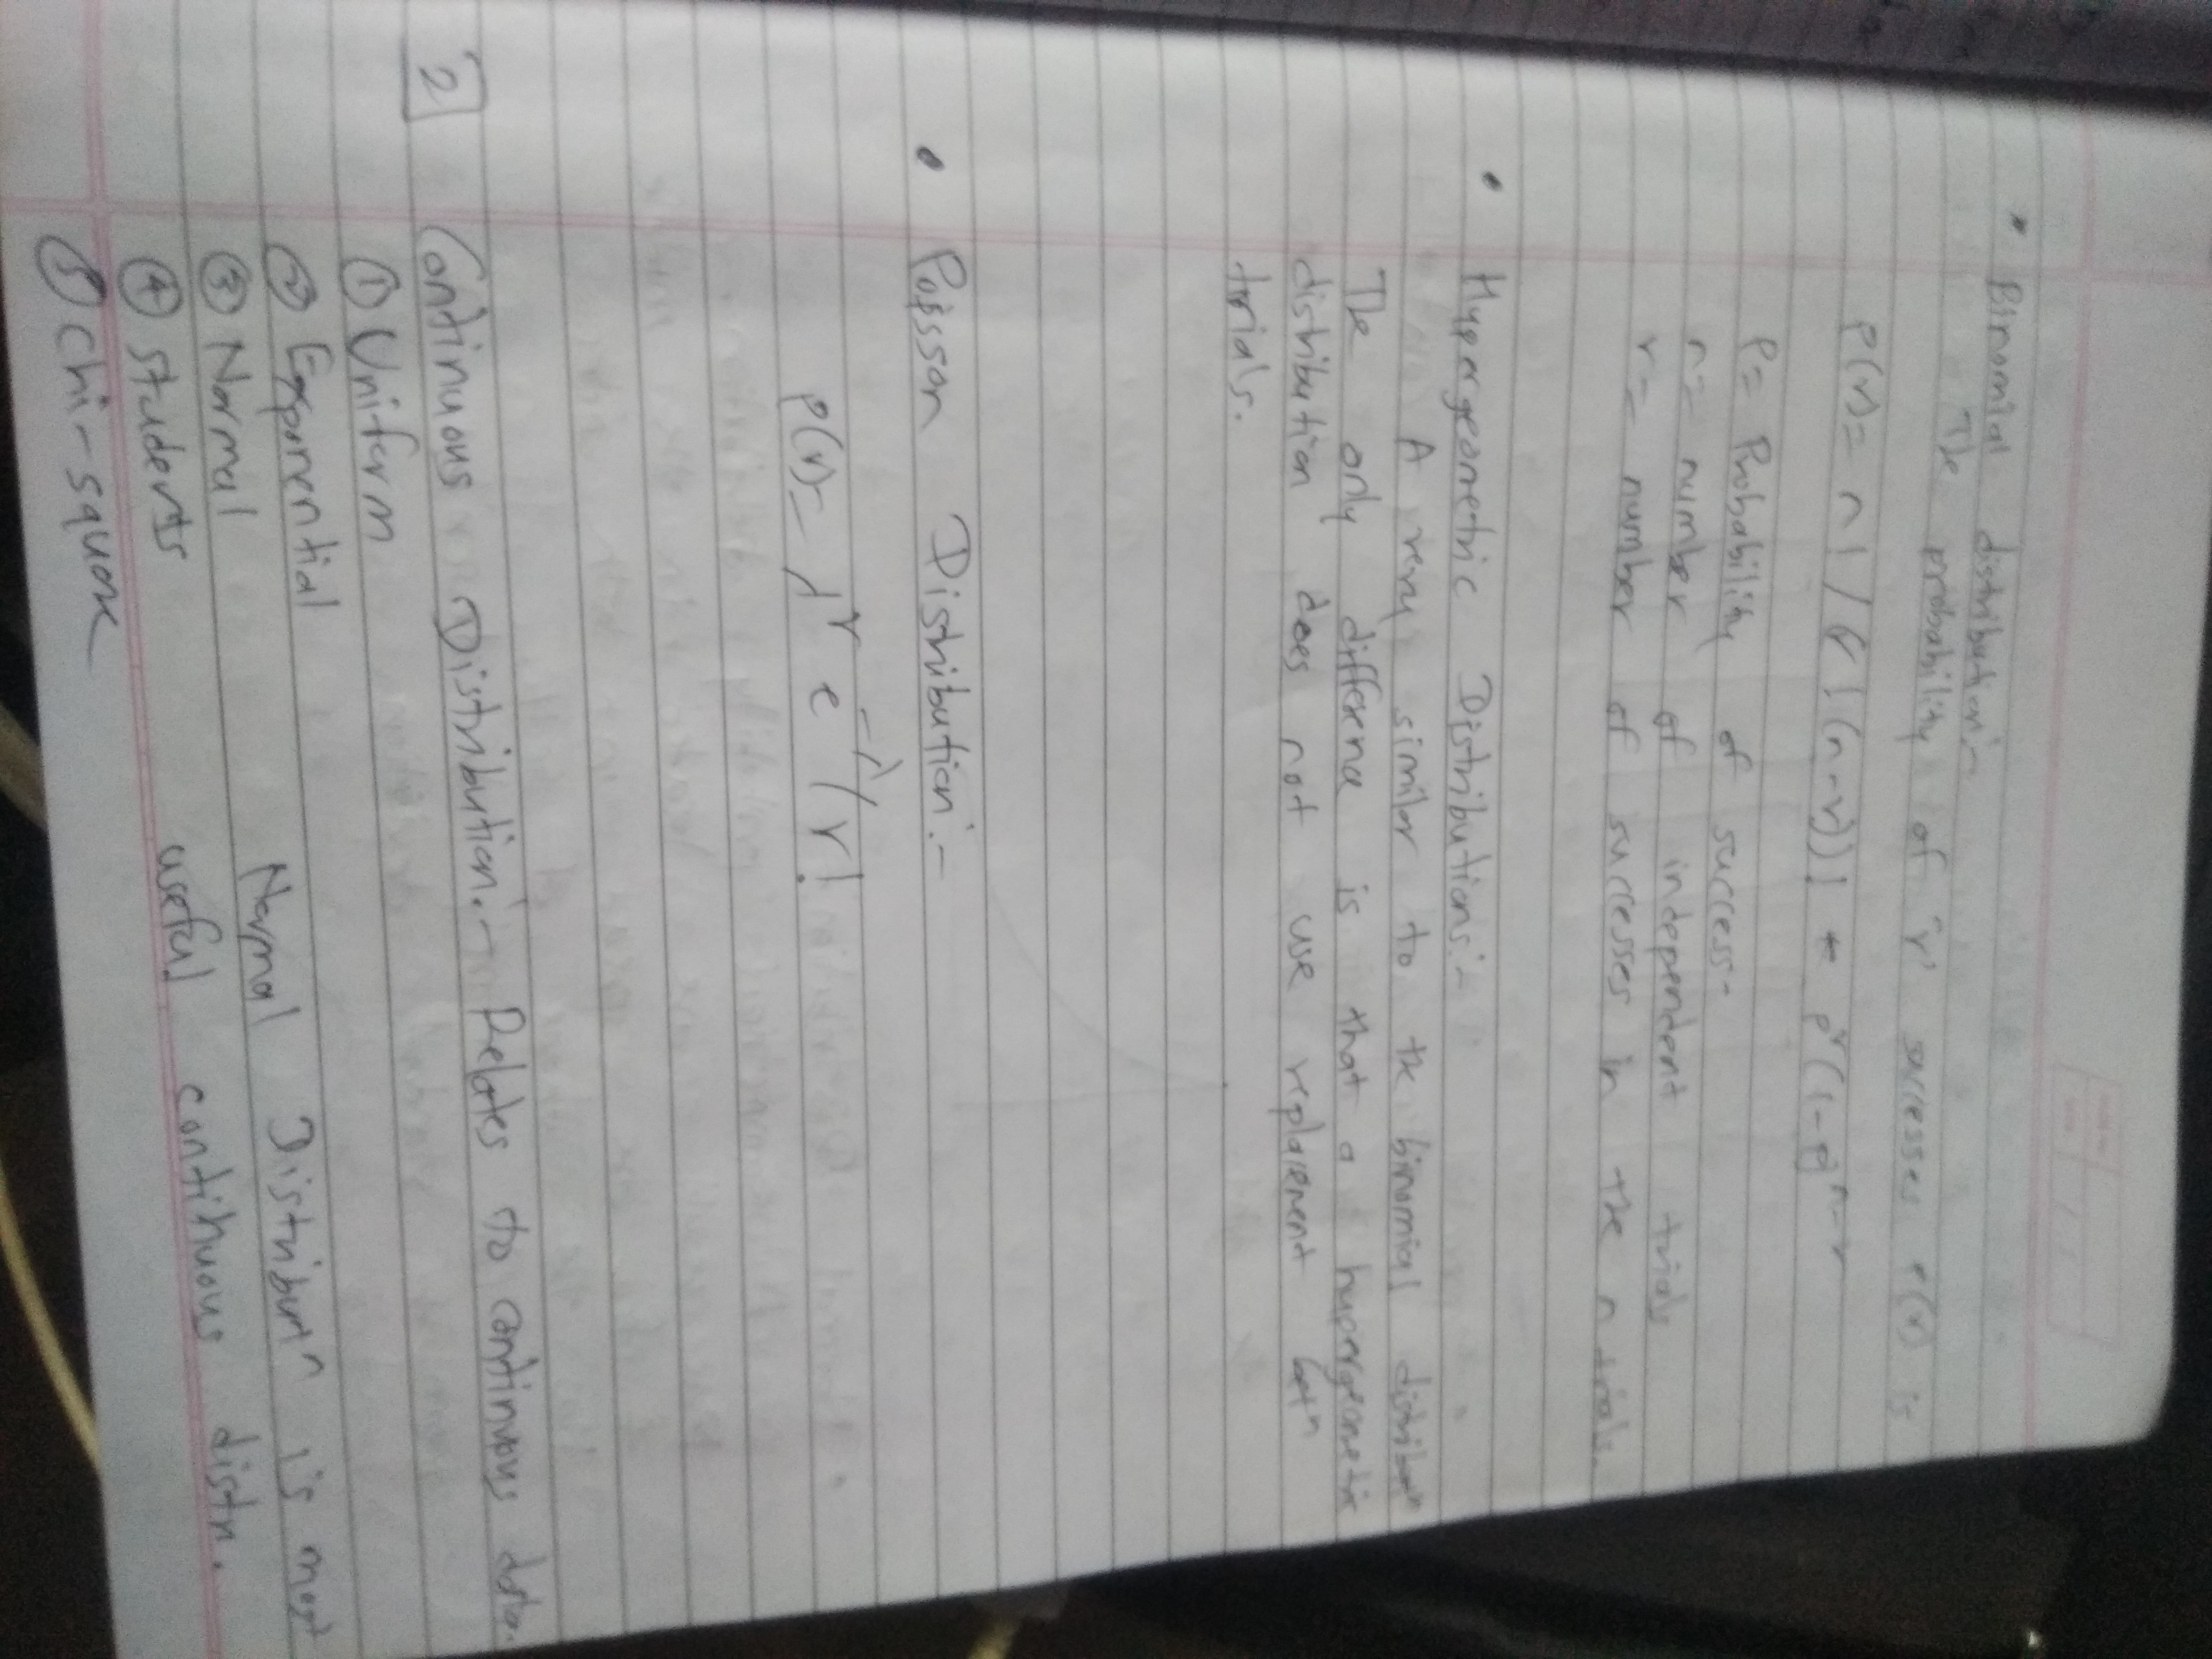 • Binomial distribution:-
The probability of 'r' successes P(r) is
P(r) = n! / (r!(n-r))! * p^r (1-p)^n-r
P = Probability of success-
n = number of independent trials
r = number of successes in the n trials.
• Hypergeometric Distributions:-
A very similar to the binomial distribuⁿ
The only difference is that a hypergeometric
distribution does not use replacement betⁿ
trials.
• Poisson Distribution:-
P(r) = λ^r e^-λ / r!
2 Continuous Distribution:- Relates to continuous data.
① Uniform
② Exponential
③ Normal
④ students
⑤ Chi-square
Normal Distribuⁿ is most
useful continuous distn.